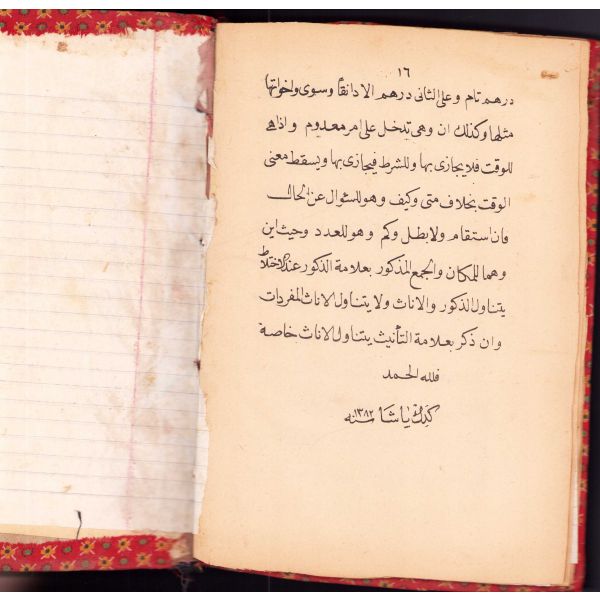 ١٦
درهم تام وعلى الثانى درهم الا دانقا وسوى واخواتها
مثلها وكذلك ان وهى تدخل على امر معدوم واذا هى
للوقت فلا يجازى بها وللشرط فيجازى بها ويسقط معنى
الوقت بخلاف متى وكيف وهو للسئوال عن الحال
فان استقام ولا بطل وكم وهو للعدد وحيث اين
وهما للمكان والجمع المذكور بعلامة الذكور عند الاختلاط
يتناول الذكور والاناث ولا يتناول الاناث المفردات
وان ذكر بعلامة التأنيث يتناول الاناث خاصة
فلله الحمد
سنه ١٣٨٢